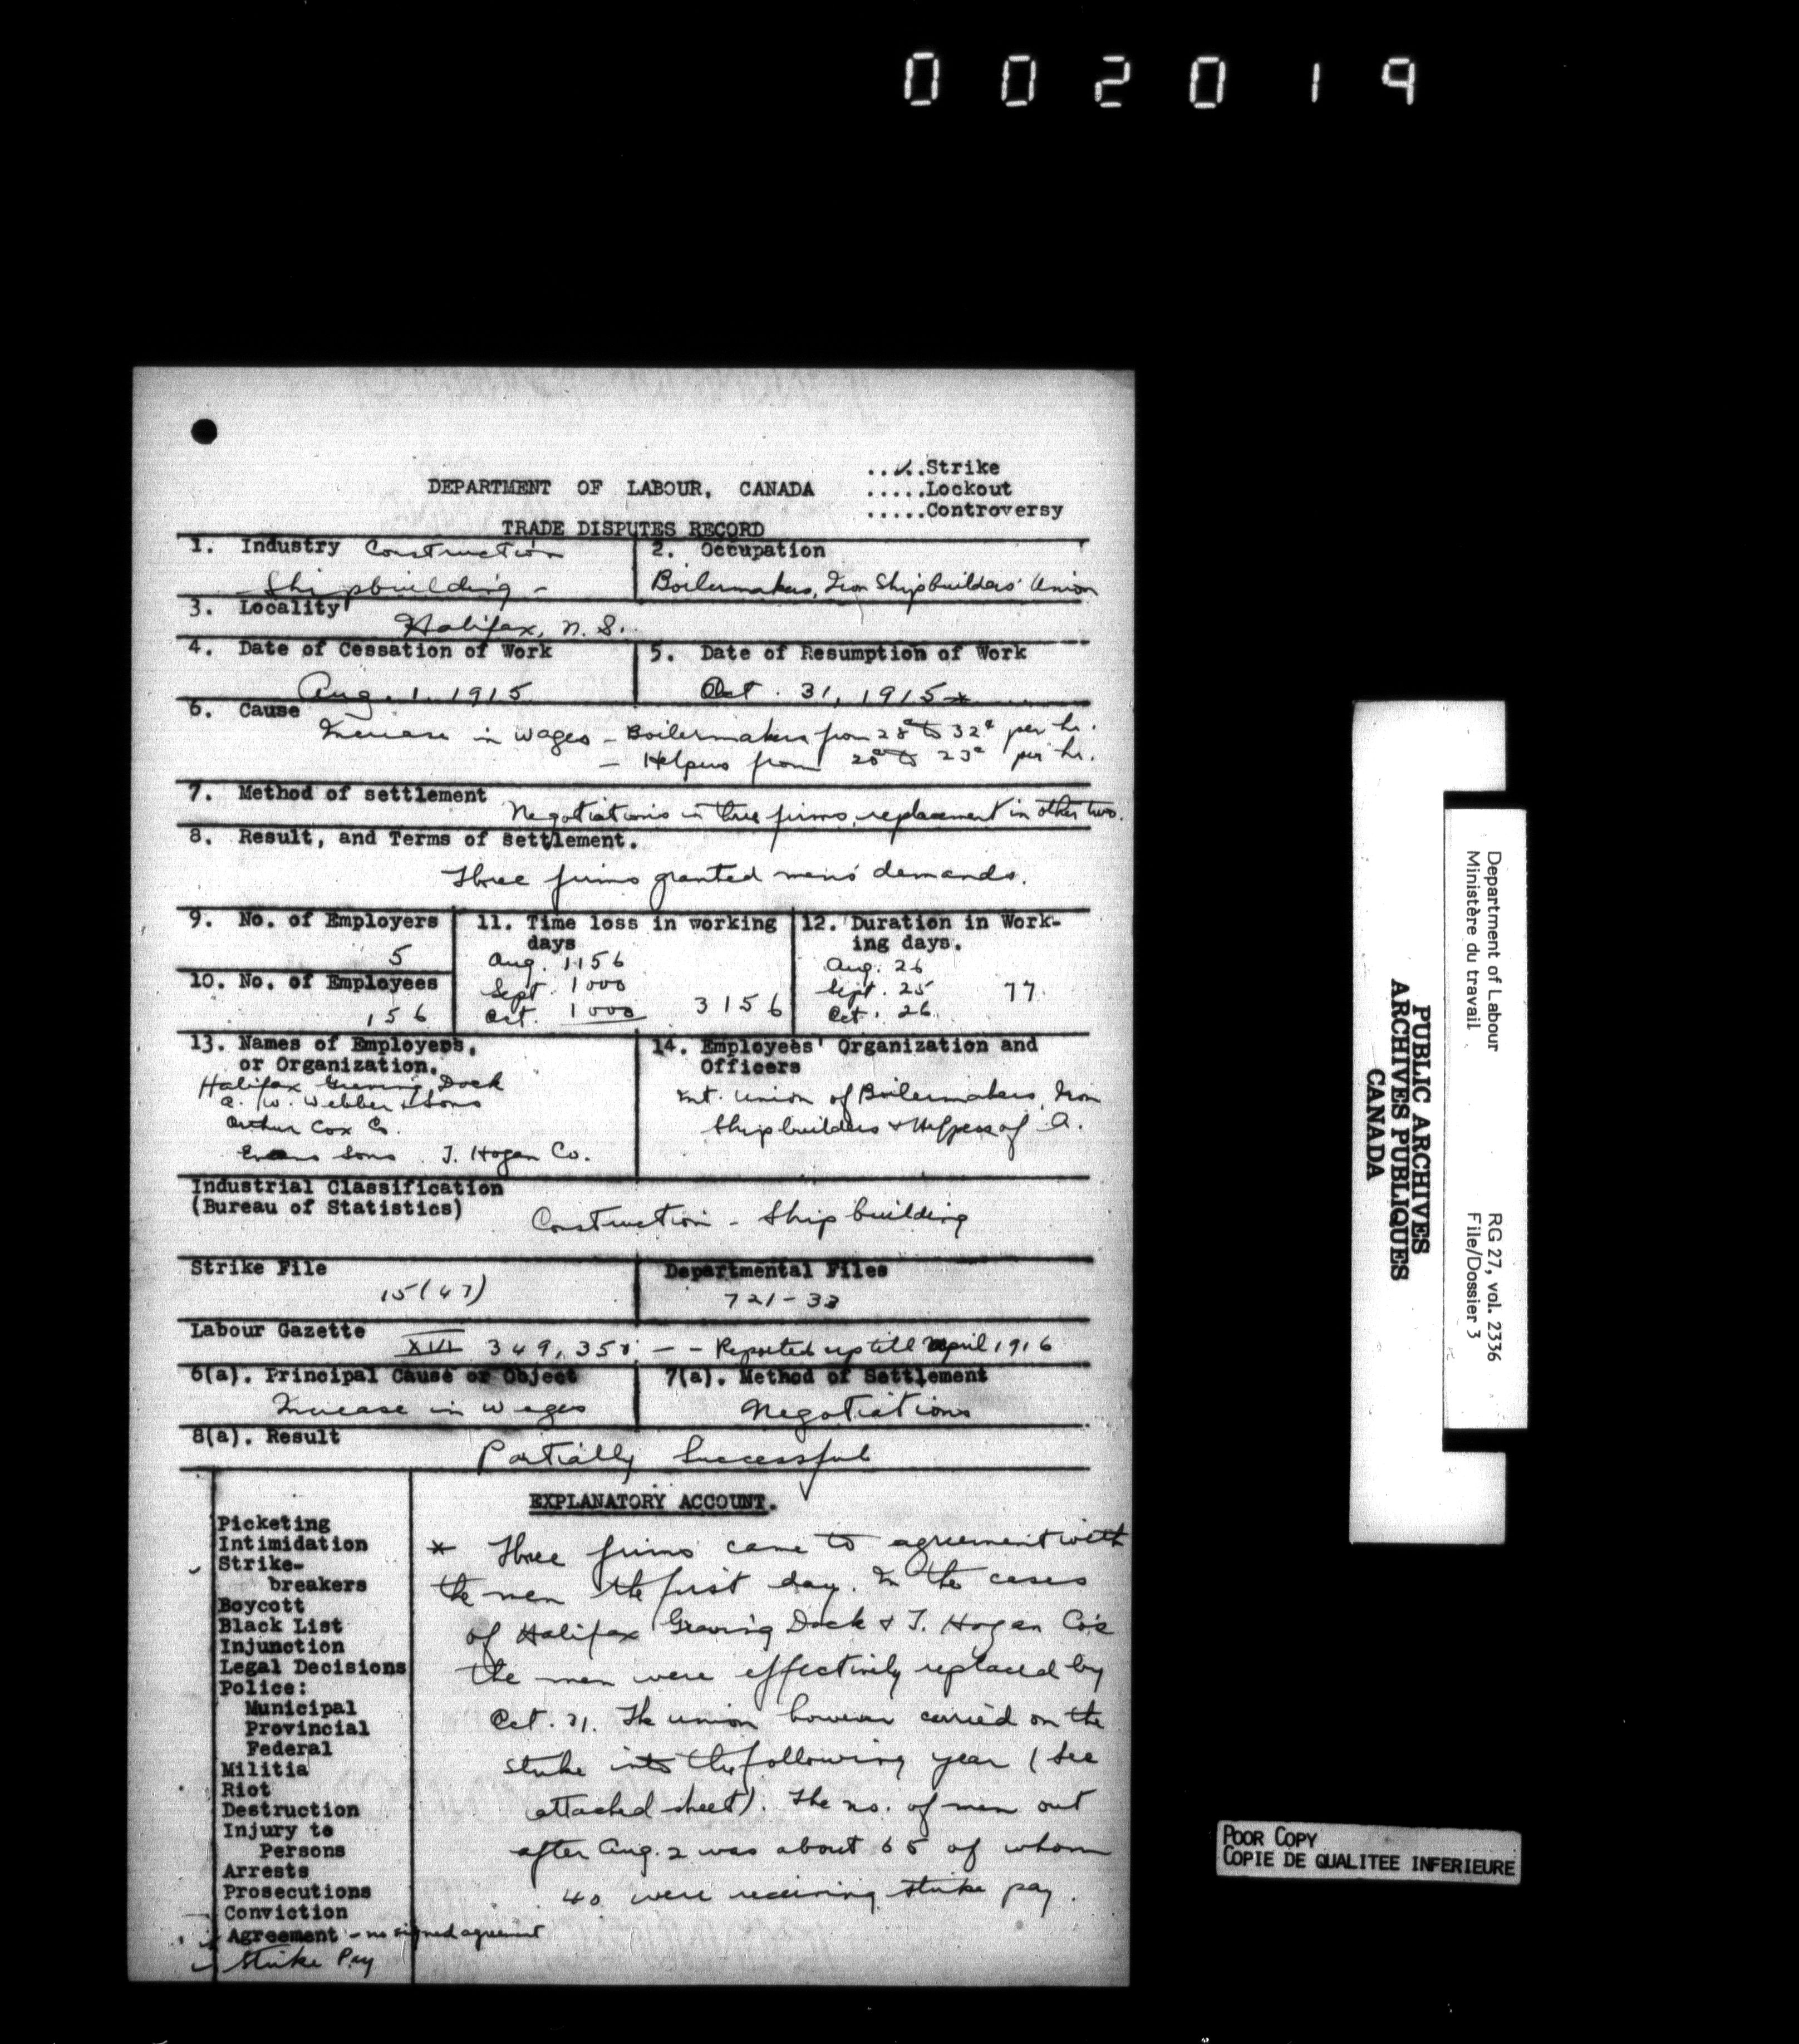 002019
..✓..Strike
DEPARTMENT OF LABOUR, CANADA
.....Lockout
.....Controversy
TRADE DISPUTES RECORD
1. Industry Construction
Shipbuilding -
2. Occupation
Boilermakers, Iron Shipbuilders' Union
3. Locality
Halifax, N.S.
4. Date of Cessation of Work
Aug. 1. 1915
5. Date of Resumption of Work
Oct. 31, 1915 *
6. Cause
Increase in wages - Boilermakers from 28¢ to 32¢ per hr.
- Helpers from 20¢ to 23¢ per hr.
7. Method of settlement
Negotiations in three firms, replacement in other two.
8. Result, and Terms of settlement.
Three firms granted men's demands.
9. No. of Employers
5
10. No. of Employees
156
11. Time loss in working
days
Aug. 1156
Sept. 1000
Oct. 1000 3156
12. Duration in Work-
ing days.
Aug. 26
Sept. 25 77
Oct. 26
13. Names of Employers,
or Organization.
Halifax Graving Dock
a. W. Webber & Sons
Arthur Cox Co.
Evans Sons J. Hogan Co.
14. Employees' Organization and
Officers
Int. Union of Boilermakers, Iron
Shipbuilders & Helpers of A.
Industrial Classification
(Bureau of Statistics)
Construction - Ship building
Strike File
15(47)
Departmental Files
721-33
Labour Gazette
XVI 349, 350 - - Reported up till April 1916
6(a). Principal Cause or Object
Increase in wages
7(a). Method of Settlement
Negotiations
8(a). Result
Partially Successful
EXPLANATORY ACCOUNT.
Picketing
Intimidation
Strike-
breakers
Boycott
Black List
Injunction
Legal Decisions
Police:
Municipal
Provincial
Federal
Militia
Riot
Destruction
Injury to
Persons
Arrests
Prosecutions
Conviction
Agreement - no signed agreement
Strike Pay
* Three firms came to agreement with
the men the first day. In the cases
of Halifax Graving Dock & J. Hogan Co's
the men were effectively replaced by
Oct. 31. The union however carried on the
strike into the following year (see
attached sheet). The no. of men out
after Aug. 2 was about 65 of whom
40 were receiving strike pay.
Department of Labour
Ministère du travail
RG 27, vol. 2336
File/Dossier 3
PUBLIC ARCHIVES
ARCHIVES PUBLIQUES
CANADA
POOR COPY
COPIE DE QUALITEE INFERIEURE